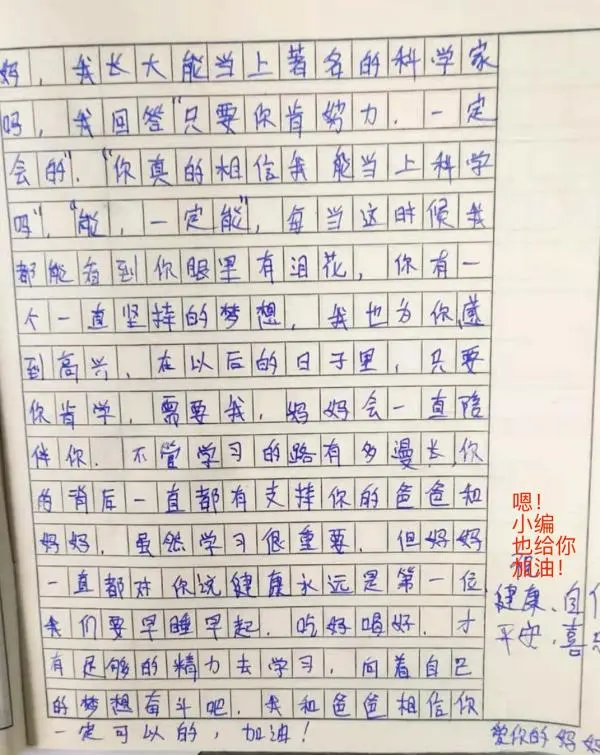 妈，我长大能当上著名的科学家
吗，我回答"只要你肯努力，一定
会的"，"你真的相信我能当上科学
吗"，"能，一定能"，每当这时候我
都能看到你眼里有泪花，你有一
个一直坚持的梦想，我也为你感
到高兴，在以后的日子里，只要
你肯学，需要我，妈妈会一直陪
伴你，不管学习的路有多漫长，你
的背后一直都有支持你的爸爸和
妈妈，虽然学习很重要，但妈妈
一直都对你说健康永远是第一位
我们要早睡早起，吃好喝好，才
有足够的精力去学习，向着自己
的梦想奋斗吧，我和爸爸相信你
一定可以的，加油！
嗯！
小编
也给你
加油！
健康、自
平安、喜
爱你的妈妈